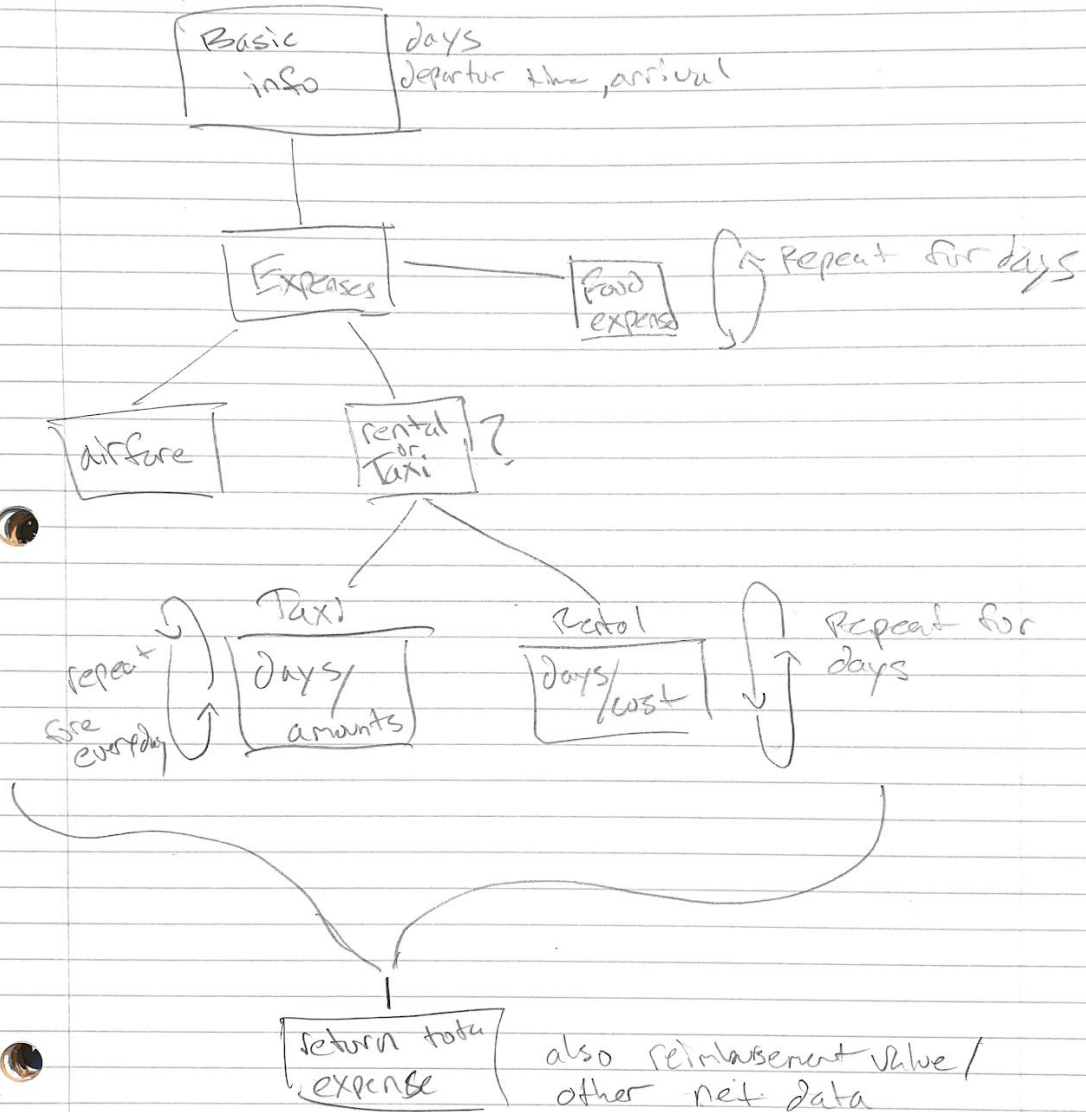 Basic
info
days
departur time, arrival
Expenses
Food
expense
Repeat for days
airfare
rental
or
Taxi
?
Taxi
Days/
amounts
repeat
fore
everyday
Rental
Days/
cost
Repeat for
days
return total
expense
also reimbursement value/
other net data